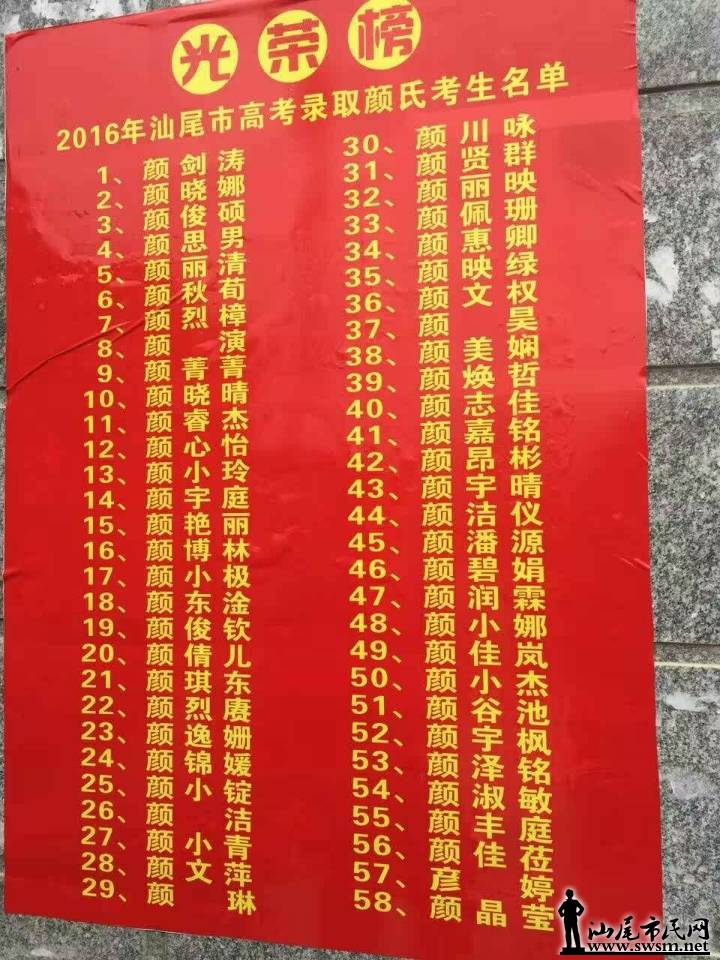 光荣榜
2016年汕尾市高考录取颜氏考生名单
1、颜剑涛
2、颜晓娜
3、颜俊硕
4、颜思男
5、颜丽清
6、颜秋荀
7、颜烈樟
8、颜 演
9、颜菁菁
10、颜晓晴
11、颜睿杰
12、颜心怡
13、颜小玲
14、颜宇庭
15、颜艳丽
16、颜博林
17、颜小极
18、颜东淦
19、颜俊钦
20、颜倩儿
21、颜琪东
22、颜烈赓
23、颜逸姗
24、颜锦媛
25、颜小锭
26、颜 洁
27、颜小青
28、颜文萍
29、颜 琳
30、颜川咏
31、颜贤群
32、颜丽映
33、颜佩珊
34、颜惠卿
35、颜映绿
36、颜文权
37、颜 昊
38、颜美娴
39、颜焕哲
40、颜志佳
41、颜嘉铭
42、颜昂彬
43、颜宇晴
44、颜洁仪
45、颜潘源
46、颜碧娟
47、颜润霖
48、颜小娜
49、颜佳岚
50、颜小杰
51、颜谷池
52、颜宇枫
53、颜泽铭
54、颜淑敏
55、颜丰庭
56、颜佳莅
57、彦 婷
58、颜晶莹
汕尾市民网
www.swsm.net